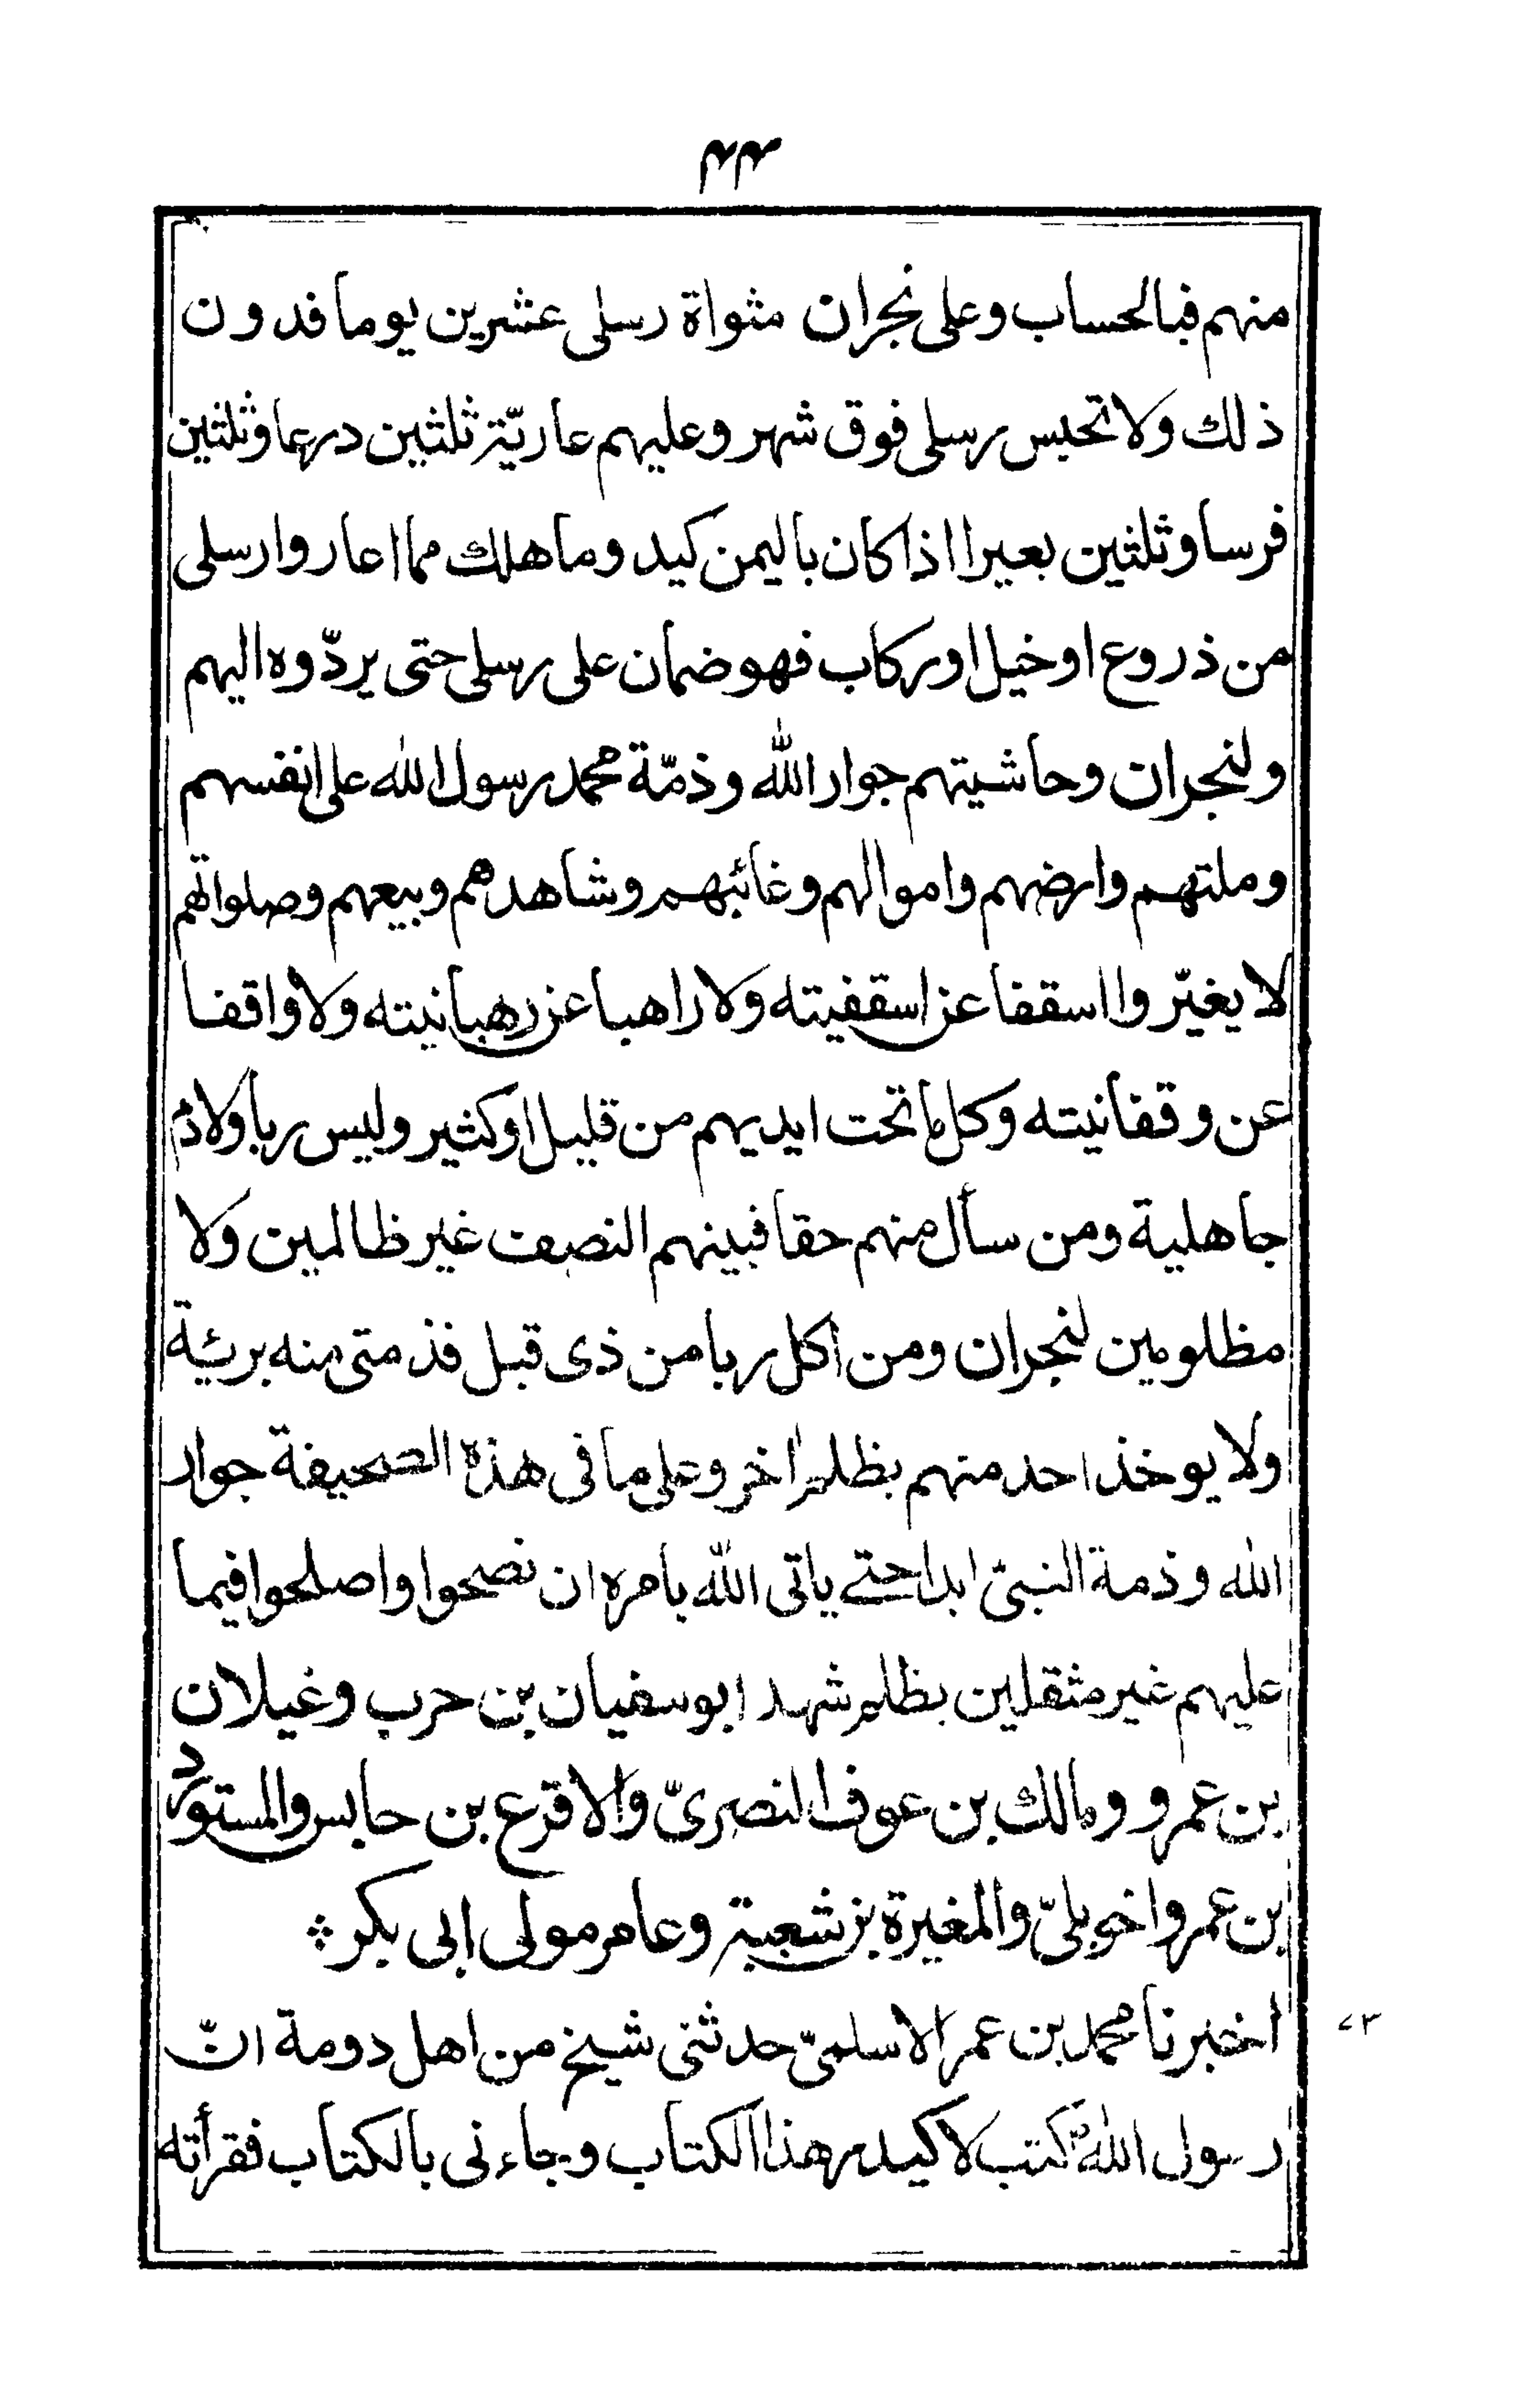 ٤٤
منهم فبالحساب وعلى نجران مثواة رسلى عشرين يوما فدون
ذلك ولا تحبس رسلى فوق شهر وعليهم عاريّة ثلثين درعا وثلثين
فرسا وثلثين بعيرا اذا كان باليمن كيد وما هلك مما اعاروا رسلى
من ذروع او خيل او ركاب فهو ضمان على رسلى حتى يردّوه اليهم
ولنجران وحاشيتهم جوار الله وذمّة محمد رسول الله على انفسهم
وملتهم وارضهم واموالهم وغائبهم وشاهدهم وبيعهم وصلواتهم
لا يغيّروا اسقفا عن اسقفيته ولا راهبا عن رهبانيته ولا واقفا
عن وقفانيته وكل ما تحت ايديهم من قليل او كثير وليس ربا ولا دم
جاهلية ومن سأل منهم حقا فبينهم النصف غير ظالمين ولا
مظلومين لنجران ومن اكل ربا من ذى قبل فذمتى منه بريئة
ولا يوخذ احد منهم بظلم اخر وعلى ما فى هذه الصحيفة جوار
الله وذمة النبىّ ابدا حتى ياتى الله بامره ان نصحوا واصلحوا فيما
عليهم غير مثقلين بظلم شهد ابو سفيان بن حرب وغيلان
بن عمرو ومالك بن عوف النصرىّ والاقرع بن حابس والمستورد
بن عمرو اخو بلىّ والمغيرة بن شعبة وعامر مولى ابى بكر ؞
٧٣ اخبرنا محمد بن عمر الاسلمىّ حدثنى شيخ من اهل دومة انّ
رسول الله كتب لاكيدر هذا الكتاب وجاءنى بالكتاب فقرأته